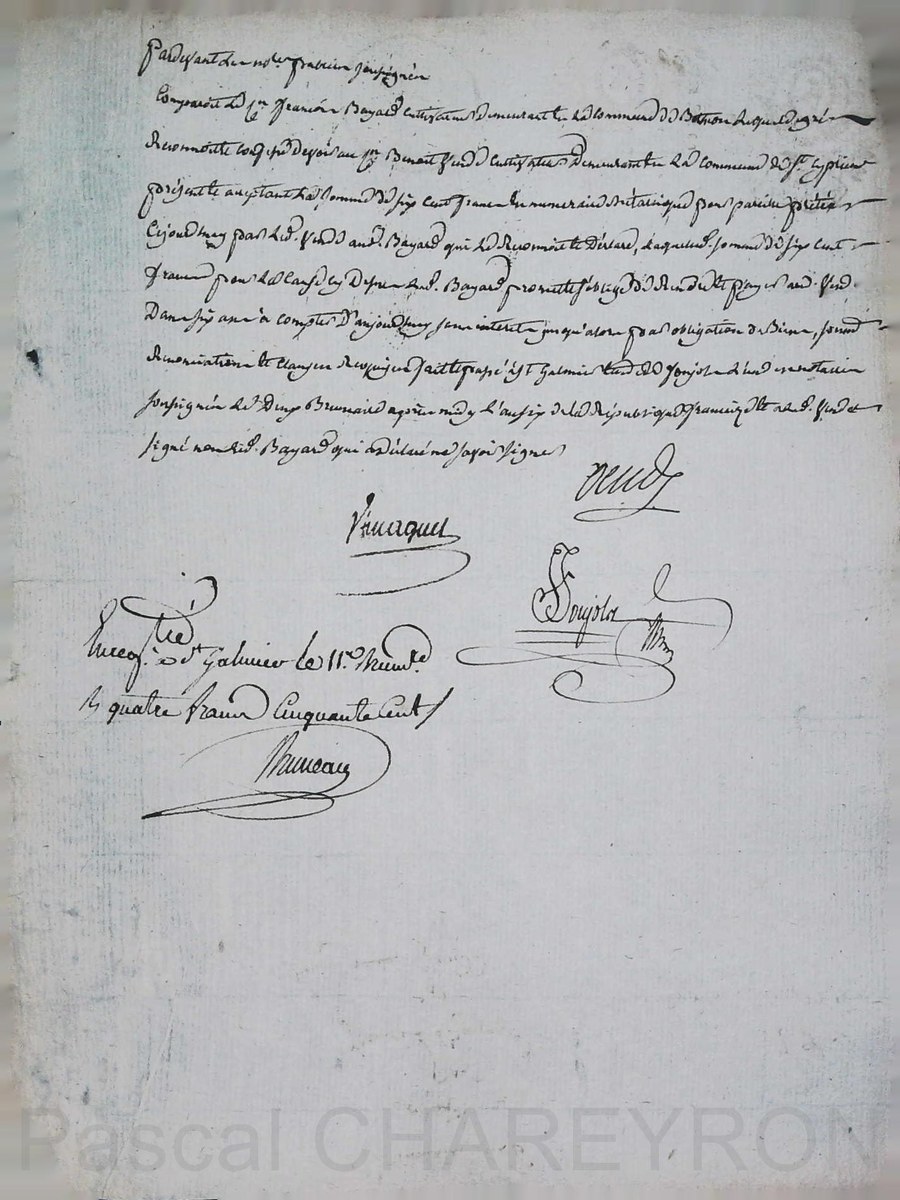 Pardevant les no.res publics soussignés
Comparoit le c.en François Bayard cultivateur demeurant en la commune de Bonson lequel de gré
Reconnoit le confesse devoir au c.en Benoit Vend cultivateur demeurant en la commune de S.t Cyprien
présent le acceptant la somme de six cent francs en numeraire métalique pour pareille prêtée
cejourd'huy par led. Vend aud. Bayard qui le Reconnoit le Déclare, laquelle somme de six cent
francs pour les causes cy dessus led. Bayard promet le s'oblige de Rendre le payer aud. Vend
Dans six ans à compter D'aujourd'huy sans interet jusqu'alors par obligation de Biens, soumis
Renonciations le clauses Requises fait le passé à S.t Galmier Etude de Soujola l'un des notaires
soussignés le Deux Brumaire après midy l'an six de la République française le led. Vend a
signé non led. Bayard qui a déclaré ne savoir signer
Vend
Soujola
Enreg.tré à S.t Galmier le 11.e Brum.re
R quatre francs Cinquante Cent
Bruneau
Pascal CHAREYRON